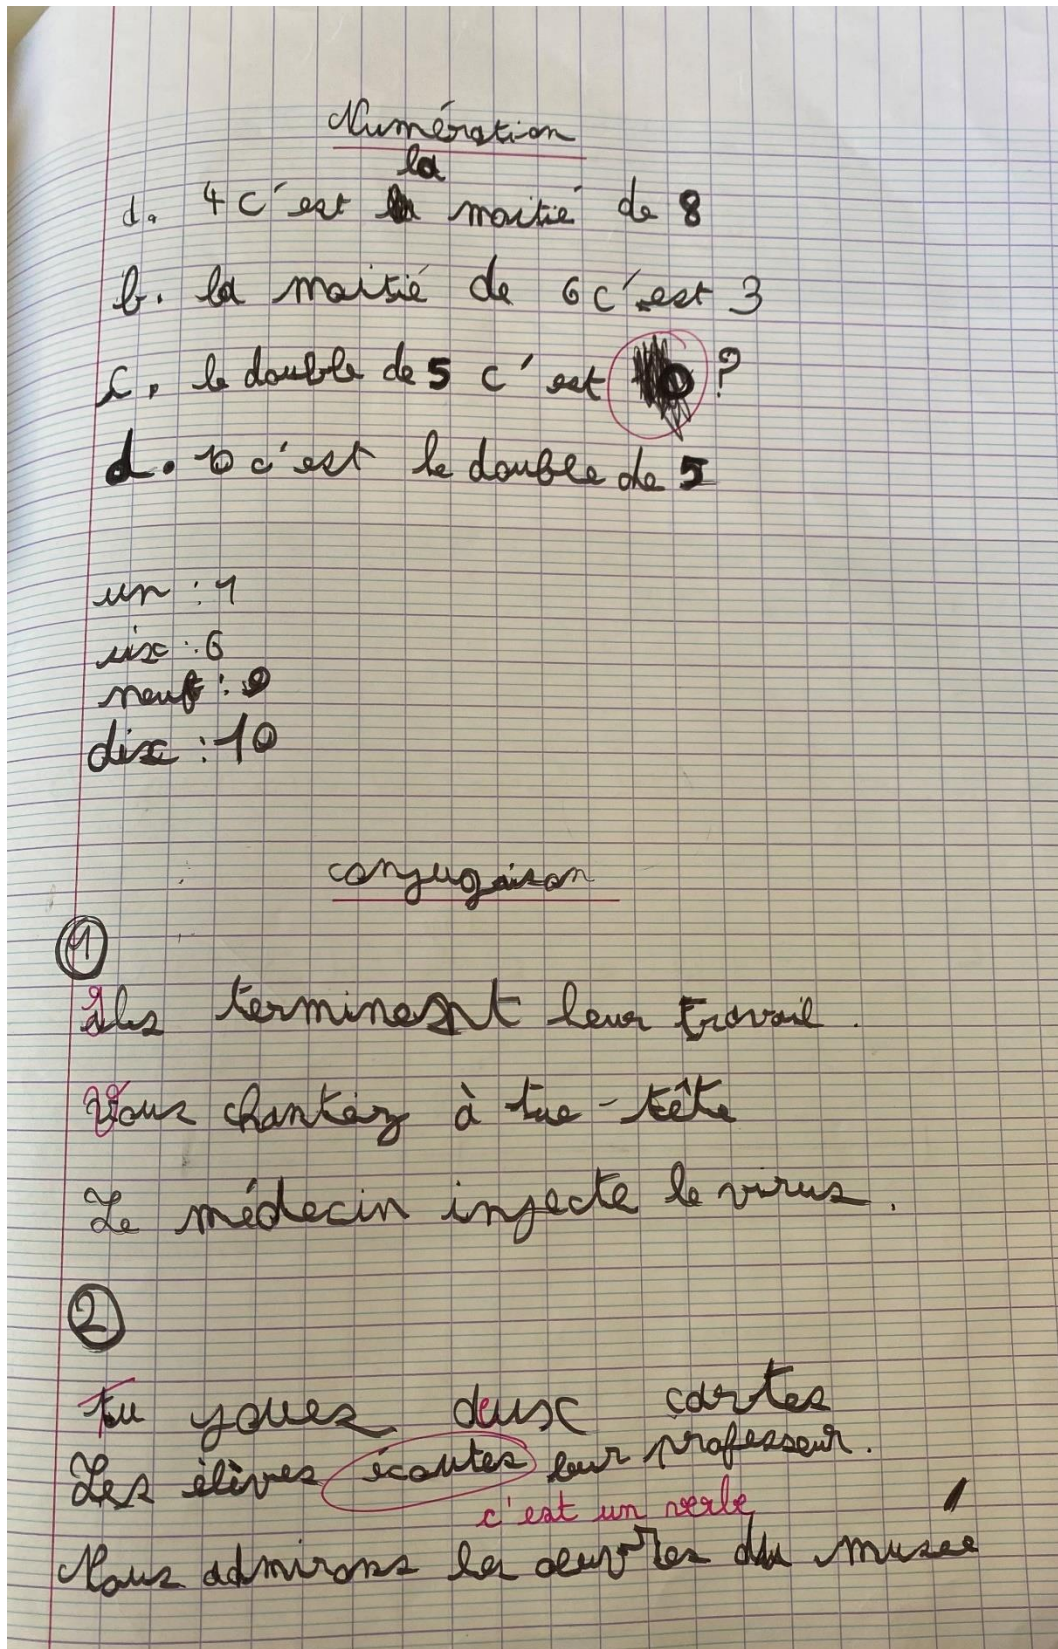 Numération
la
d. 4 c'est moitié de 8
b. la moitié de 6 c'est 3
c. le double de 5 c'est ?
d. 10 c'est le double de 5
un : 1
six : 6
neuf : 9
dix : 10
conjugaison
1
Ils terminent leur travail.
Vous chantez à tue-tête
Le médecin injecte le virus.
2
Tu joues deux cartes
Les élèves écoutes leur professeur.
c'est un verbe
Nous admirons les œuvres du musée